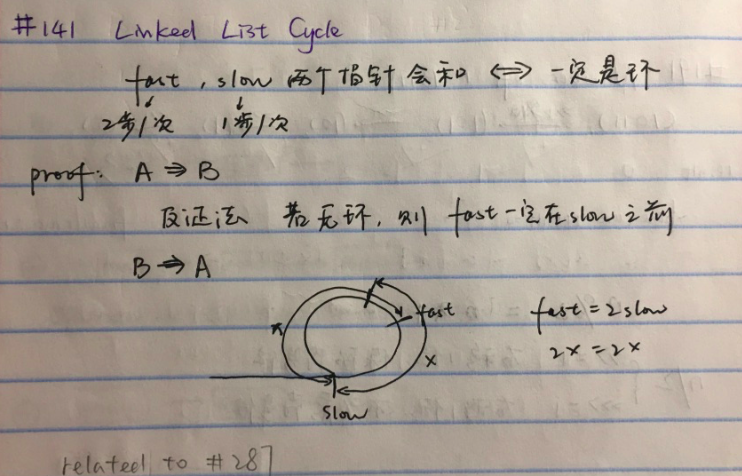 #141 Linked List Cycle
fast, slow 两个指针会和 ⟺ 一定是环
2步/次 1步/次
proof: A ⇒ B
反证法 若无环, 则 fast一定在slow之前
B ⇒ A
fast
fast = 2slow
x
2x = 2x
slow
related to #287